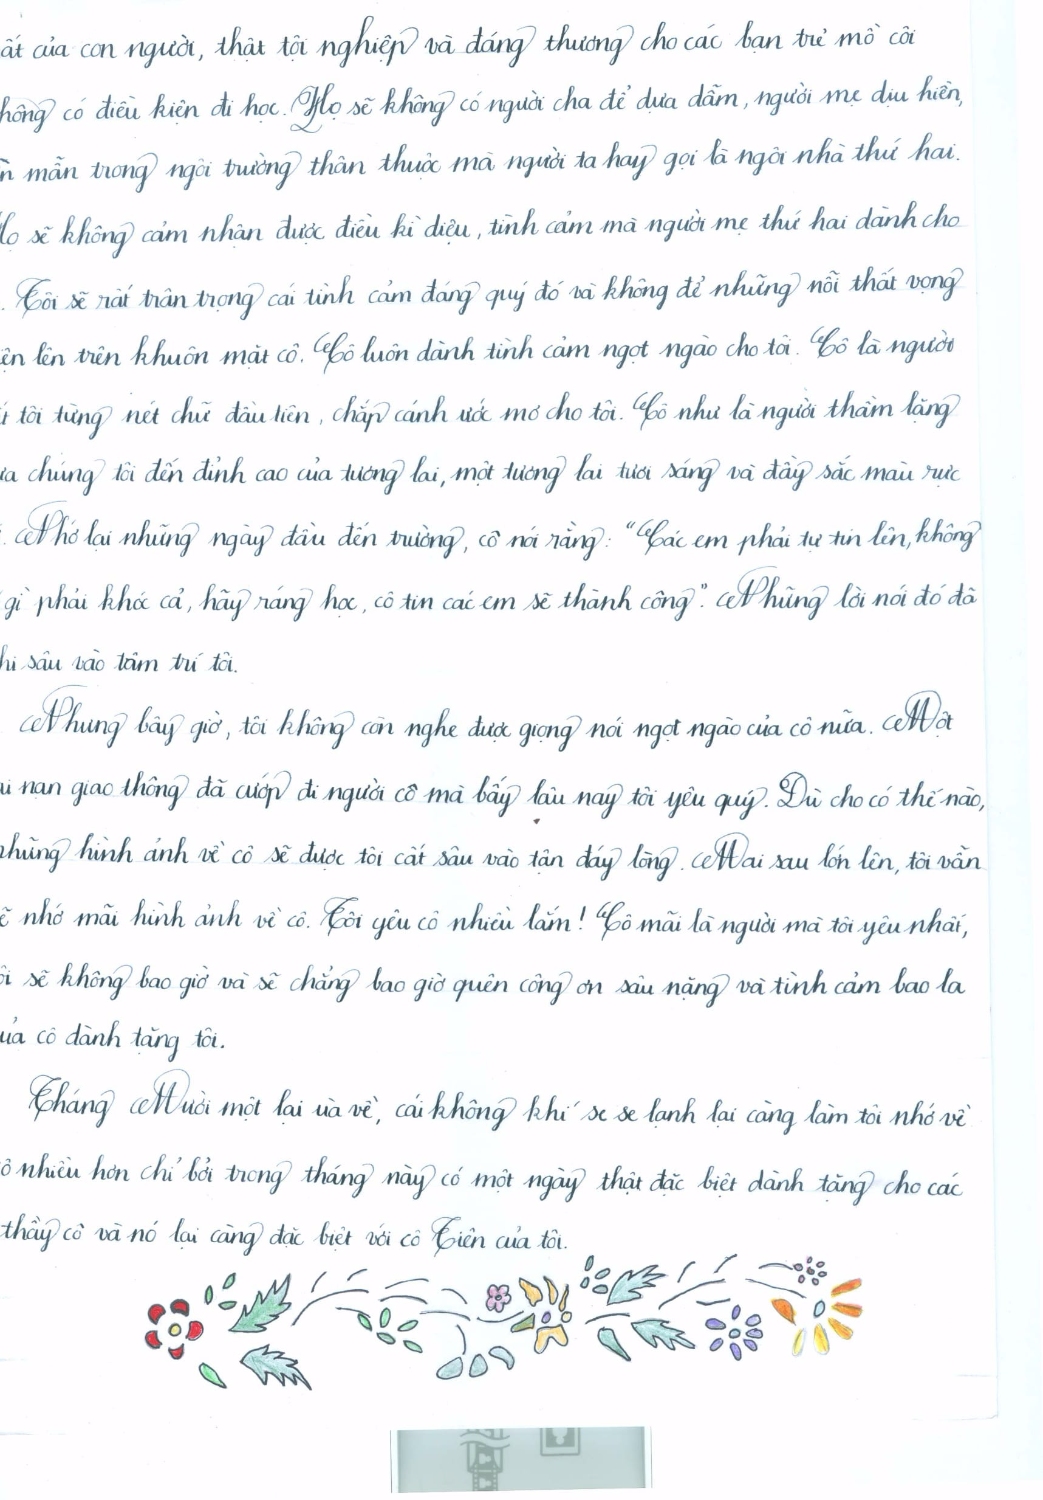 ất của con người, thật tội nghiệp và đáng thương cho các bạn trẻ mồ côi
hông có điều kiện đi học. Họ sẽ không có người cha để dựa dẫm, người mẹ dịu hiền,
n mẫn trong ngôi trường thân thuộc mà người ta hay gọi là ngôi nhà thứ hai.
Họ sẽ không cảm nhận được điều kì diệu, tình cảm mà người mẹ thứ hai dành cho
. Tôi sẽ rất trân trọng cái tình cảm đáng quý đó và không để những nỗi thất vọng
ện lên trên khuôn mặt cô. Cô luôn dành tình cảm ngọt ngào cho tôi. Cô là người
t tôi từng nét chữ đầu tiên, chắp cánh ước mơ cho tôi. Cô như là người thầm lặng
ưa chúng tôi đến đỉnh cao của tương lai, một tương lai tươi sáng và đầy sắc màu rực
. Nhớ lại những ngày đầu đến trường, cô nói rằng: "Các em phải tự tin lên, không
gì phải khóc cả, hãy ráng học, cô tin các em sẽ thành công". Những lời nói đó đã
hi sâu vào tâm trí tôi.
Nhưng bây giờ, tôi không còn nghe được giọng nói ngọt ngào của cô nữa. Một
i nạn giao thông đã cướp đi người cô mà bấy lâu nay tôi yêu quý. Dù cho có thế nào,
những hình ảnh về cô sẽ được tôi cất sâu vào tận đáy lòng. Mai sau lớn lên, tôi vẫn
ẽ nhớ mãi hình ảnh về cô. Tôi yêu cô nhiều lắm! Cô mãi là người mà tôi yêu nhất,
ôi sẽ không bao giờ và sẽ chẳng bao giờ quên công ơn sâu nặng và tình cảm bao la
ủa cô dành tặng tôi.
Tháng Mười một lại ùa về, cái không khí se se lạnh lại càng làm tôi nhớ về
ô nhiều hơn chỉ bởi trong tháng này có một ngày thật đặc biệt dành tặng cho các
thầy cô và nó lại càng đặc biệt với cô Tiên của tôi.